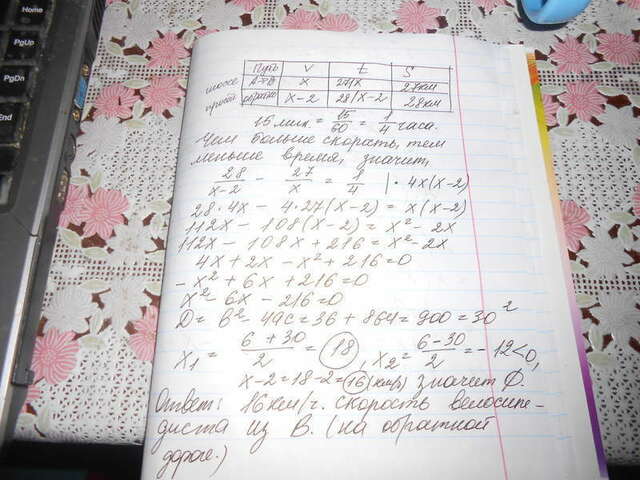 Home
PgUp
PgDn
End
Путь V t S
шоссе A→B X 27/X 27км
просёл обратно X-2 28/X-2 28км
15 мин = 15/60 = 1/4 часа.
Чем больше скорость, тем
меньше время, значит,
28/x-2 - 27/x = 1/4 | · 4x(x-2)
28·4x - 4·27(x-2) = x(x-2)
112x - 108(x-2) = x² - 2x
112x - 108x + 216 = x² - 2x
4x + 2x - x² + 216 = 0
- x² + 6x + 216 = 0
x² - 6x - 216 = 0
D = b² - 4ac = 36 + 864 = 900 = 30²
x₁ = 6+30/2 = 18, x₂ = 6-30/2 = -12<0,
x-2 = 18-2 = 16 (км/ч) значит ∅.
Ответ: 16 км/ч. скорость велосипе-
диста из B. (на обратной
дороге.)